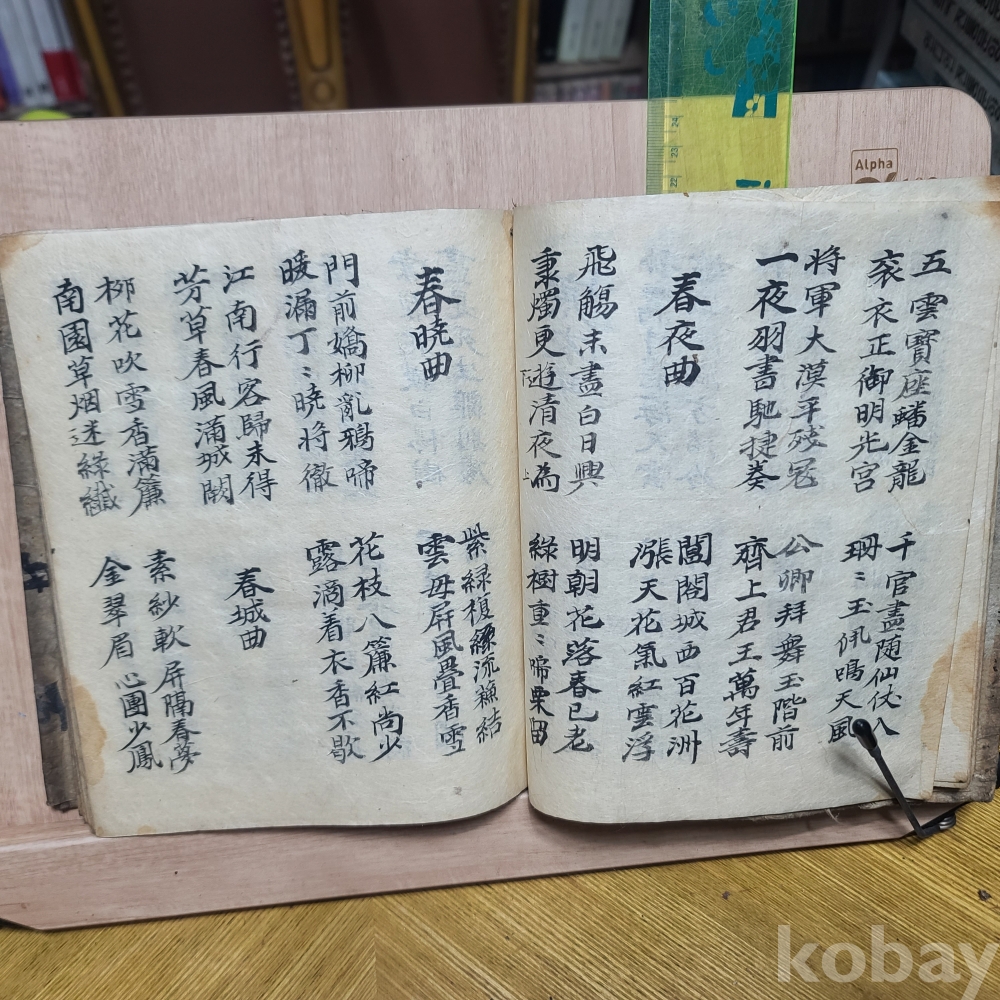 五雲寶座蟠金龍
衮衣正御明光宮
千官盡随仙仗入
珊〻玉佩鳴天風
將軍大漠平殘寇
一夜羽書馳捷奏
公卿拜舞玉階前
齊上君王萬年壽
春夜曲
閶闔城西百花洲
漲天花氣紅雲浮
飛觴未盡白日興
秉燭更遊清夜為
下
上
明朝花落春已老
綠樹重〻啼栗留
春曉曲
紫綠複流蘓結
雲母屛風疊香雪
門前嬌柳亂鴉啼
暖漏丁〻曉將徹
花枝入簾紅尚少
露滴着衣香不歇
江南行客歸未得
芳草春風滿城闕
春城曲
柳花吹雪香滿簾
南園草烟迷綠纖
素紗軟屛隔春夢
金翠眉心團少鳳
Alpha
24
23
22
kobay